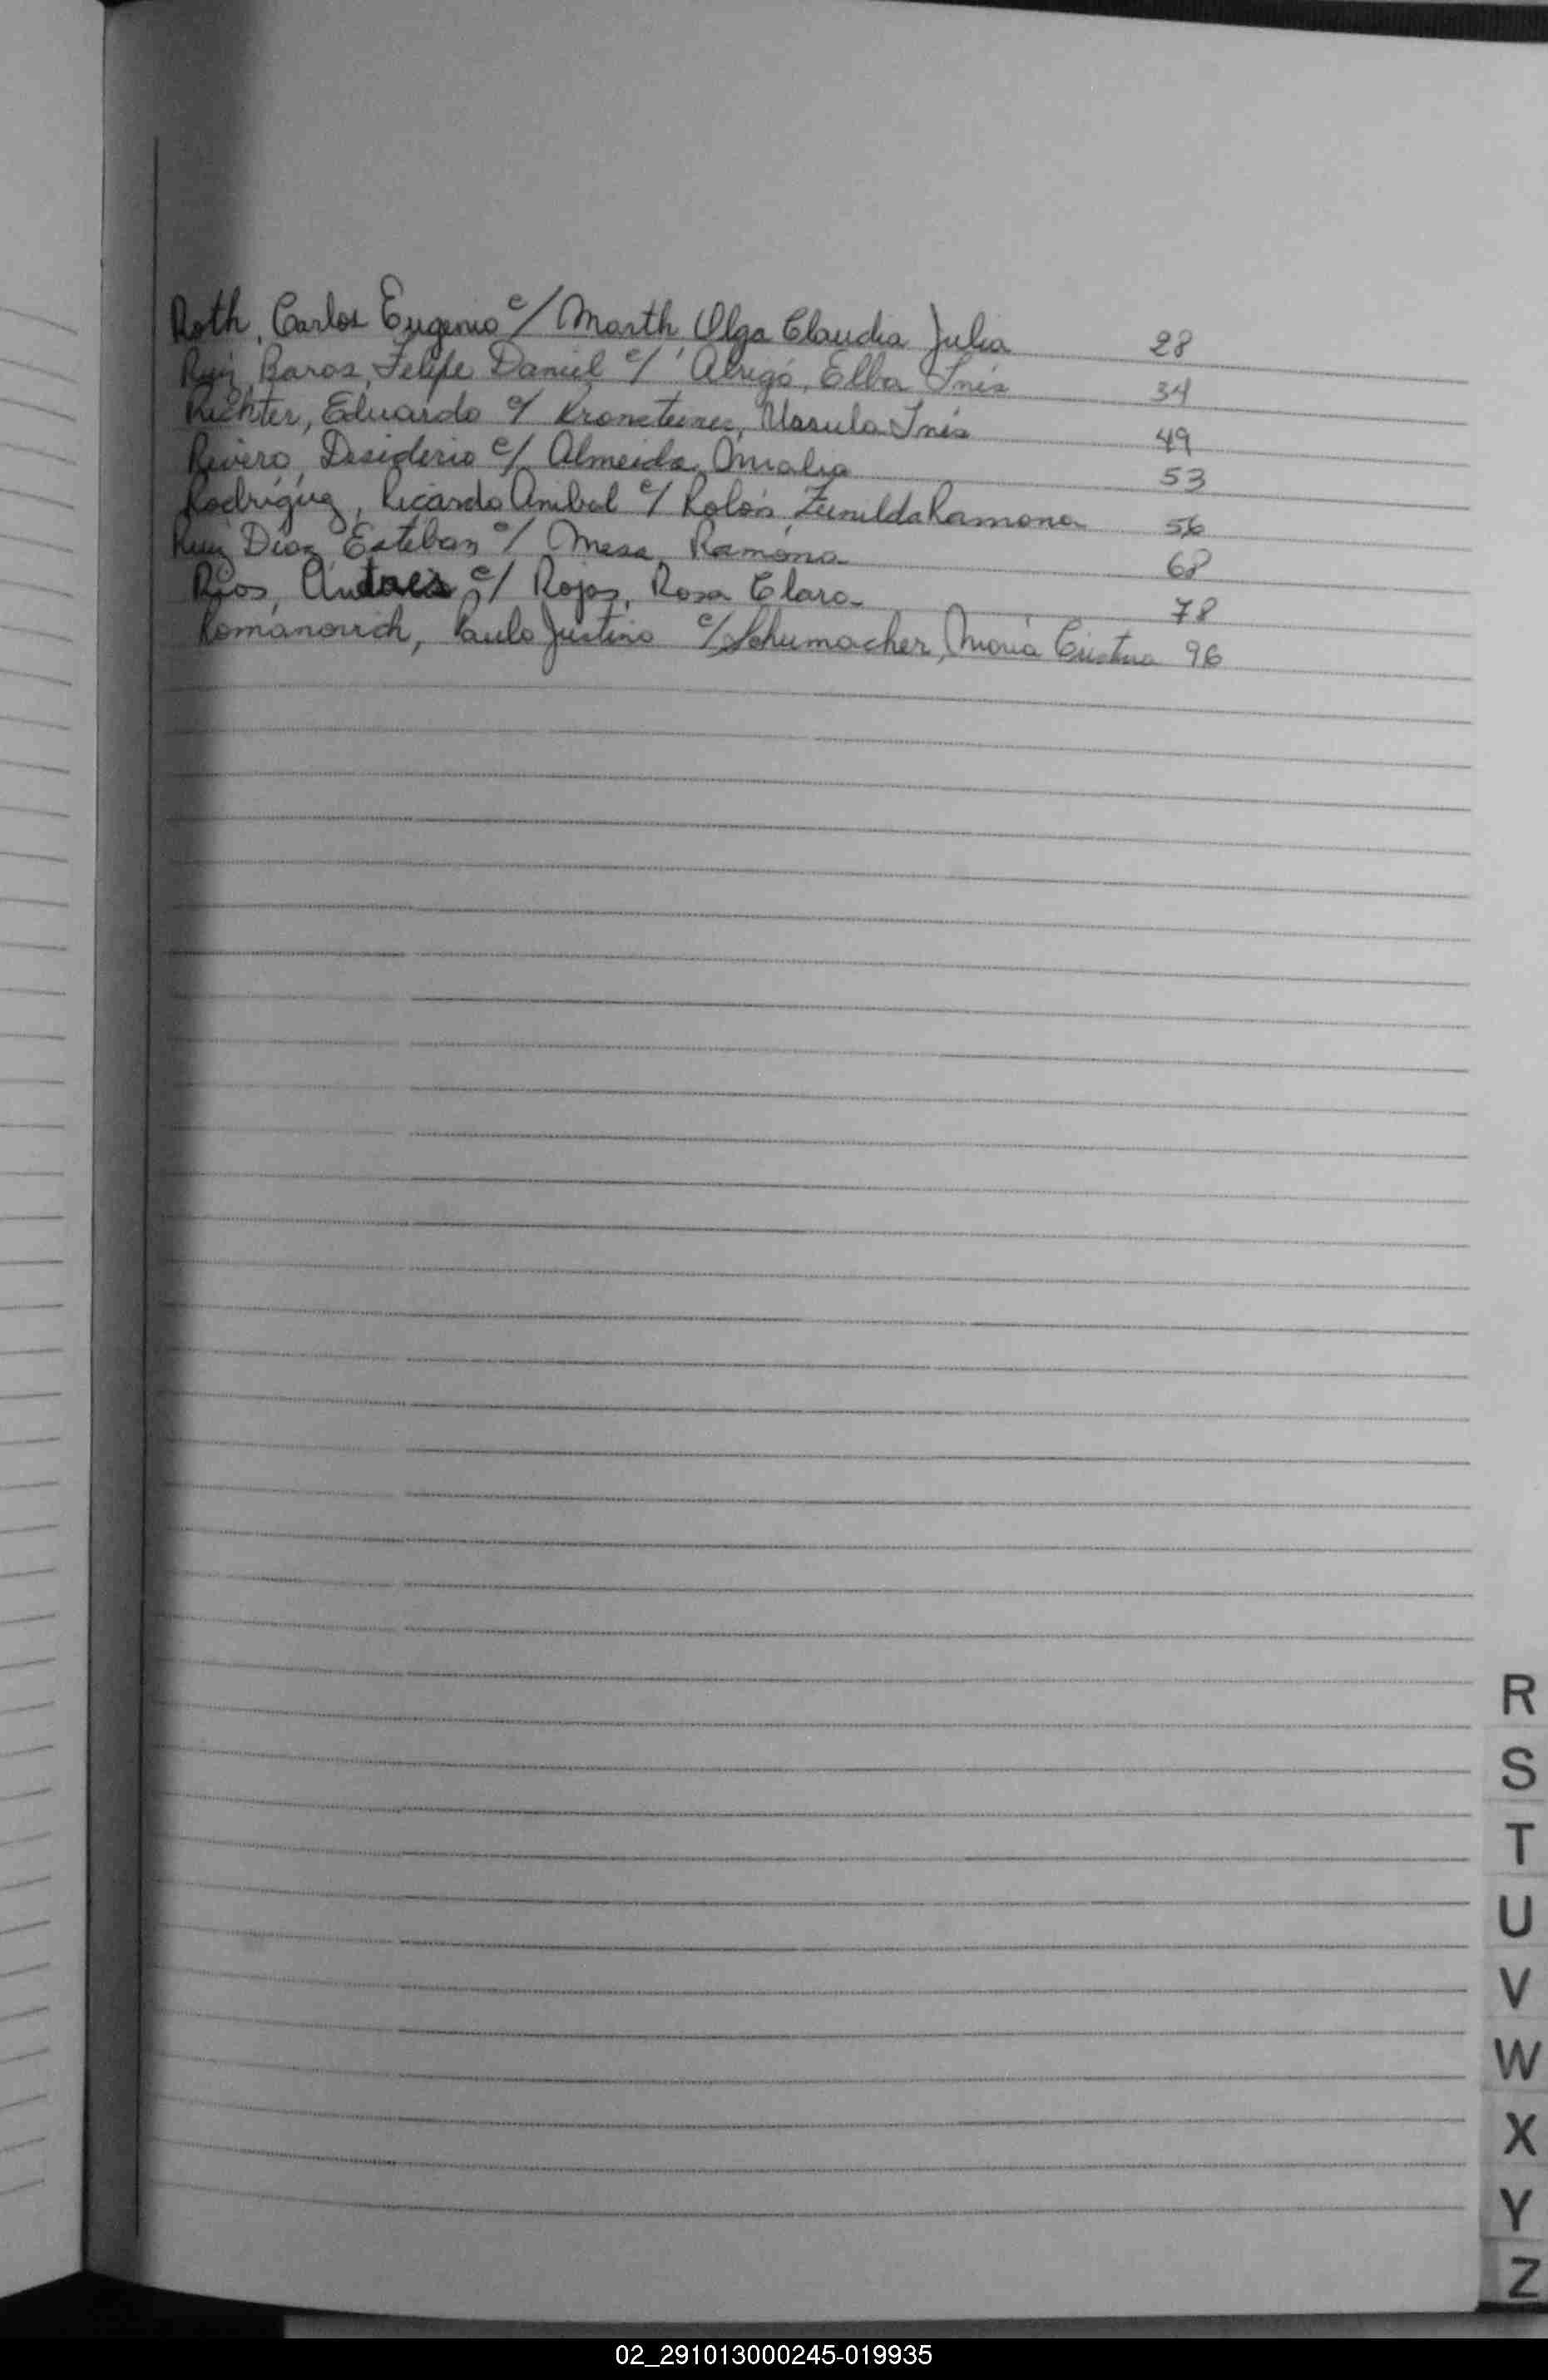 Roth, Carlos Eugenio c/ Marth, Olga Claudia Julia 28
Ruiz Baros, Felipe Daniel c/ Abrigó, Elba Inés 34
Richter, Eduardo c/ Ursula Inés 49
Rivero, Desiderio c/ Almeida, Omalia 53
Rodríguez, Ricardo Anibal c/ Rolón, Zunilda Ramona 56
Ruiz Diaz, Esteban c/ Mesa, Ramona 68
Rios, Andres c/ Rojas, Rosa Clara 78
Romanovich, Paulo Justino c/ Schumacher, María Cristina 96
R
S
T
U
V
W
X
Y
Z
02_291013000245-019935